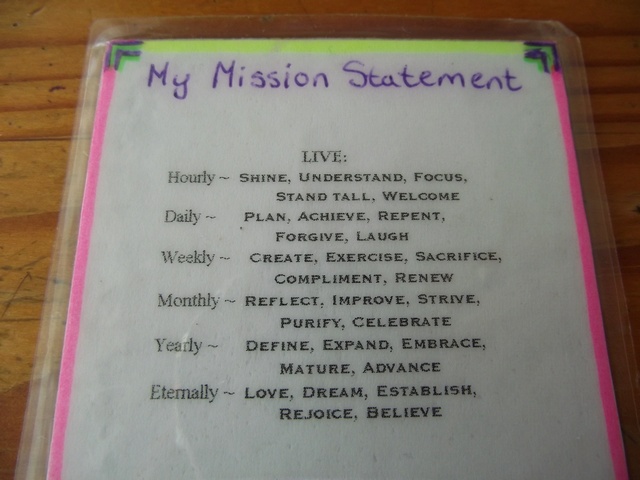 My Mission Statement
LIVE:
Hourly ~ SHINE, UNDERSTAND, FOCUS,
STAND TALL, WELCOME
Daily ~ PLAN, ACHIEVE, REPENT,
FORGIVE, LAUGH
Weekly ~ CREATE, EXERCISE, SACRIFICE,
COMPLIMENT, RENEW
Monthly ~ REFLECT, IMPROVE, STRIVE,
PURIFY, CELEBRATE
Yearly ~ DEFINE, EXPAND, EMBRACE,
MATURE, ADVANCE
Eternally ~ LOVE, DREAM, ESTABLISH,
REJOICE, BELIEVE